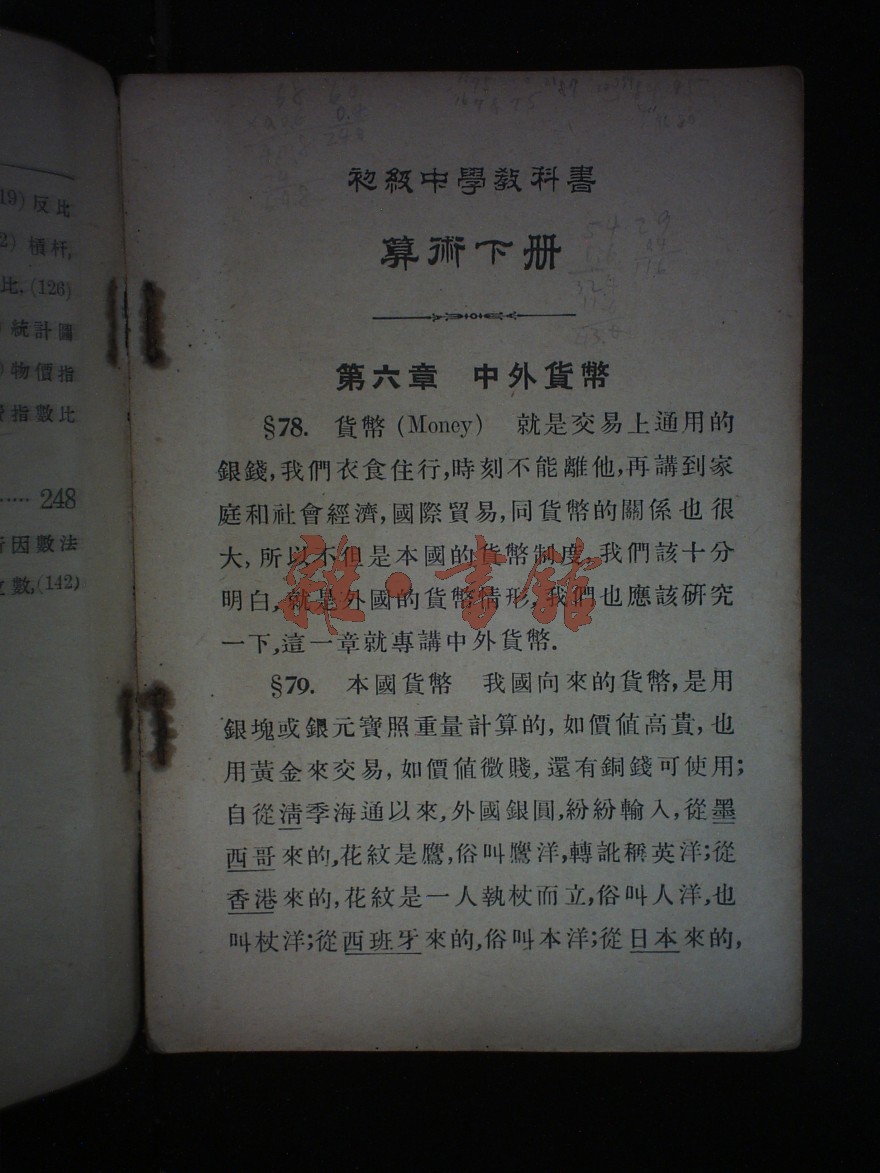 19)反比
2)槓杆,
比.(126)
統計圖
)物價指
指數比
····· 248
因數法
數,(142)
初級中學教科書
算術下册
第六章 中外貨幣
§78. 貨幣(Money) 就是交易上通用的
銀錢,我們衣食住行,時刻不能離他,再講到家
庭和社會經濟,國際貿易,同貨幣的關係也很
大,所以不但是本國的貨幣制度,我們該十分
明白,就是外國的貨幣情形,我們也應該硏究
一下,這一章就專講中外貨幣.
§79. 本國貨幣 我國向來的貨幣,是用
銀塊或銀元寶照重量計算的,如價値高貴,也
用黃金來交易,如價値微賤,還有銅錢可使用;
自從淸季海通以來,外國銀圓,紛紛輸入,從墨
西哥來的,花紋是鷹,俗叫鷹洋,轉訛稱英洋;從
香港來的,花紋是一人執杖而立,俗叫人洋,也
叫杖洋;從西班牙來的,俗叫本洋;從日本來的,
雜·書館